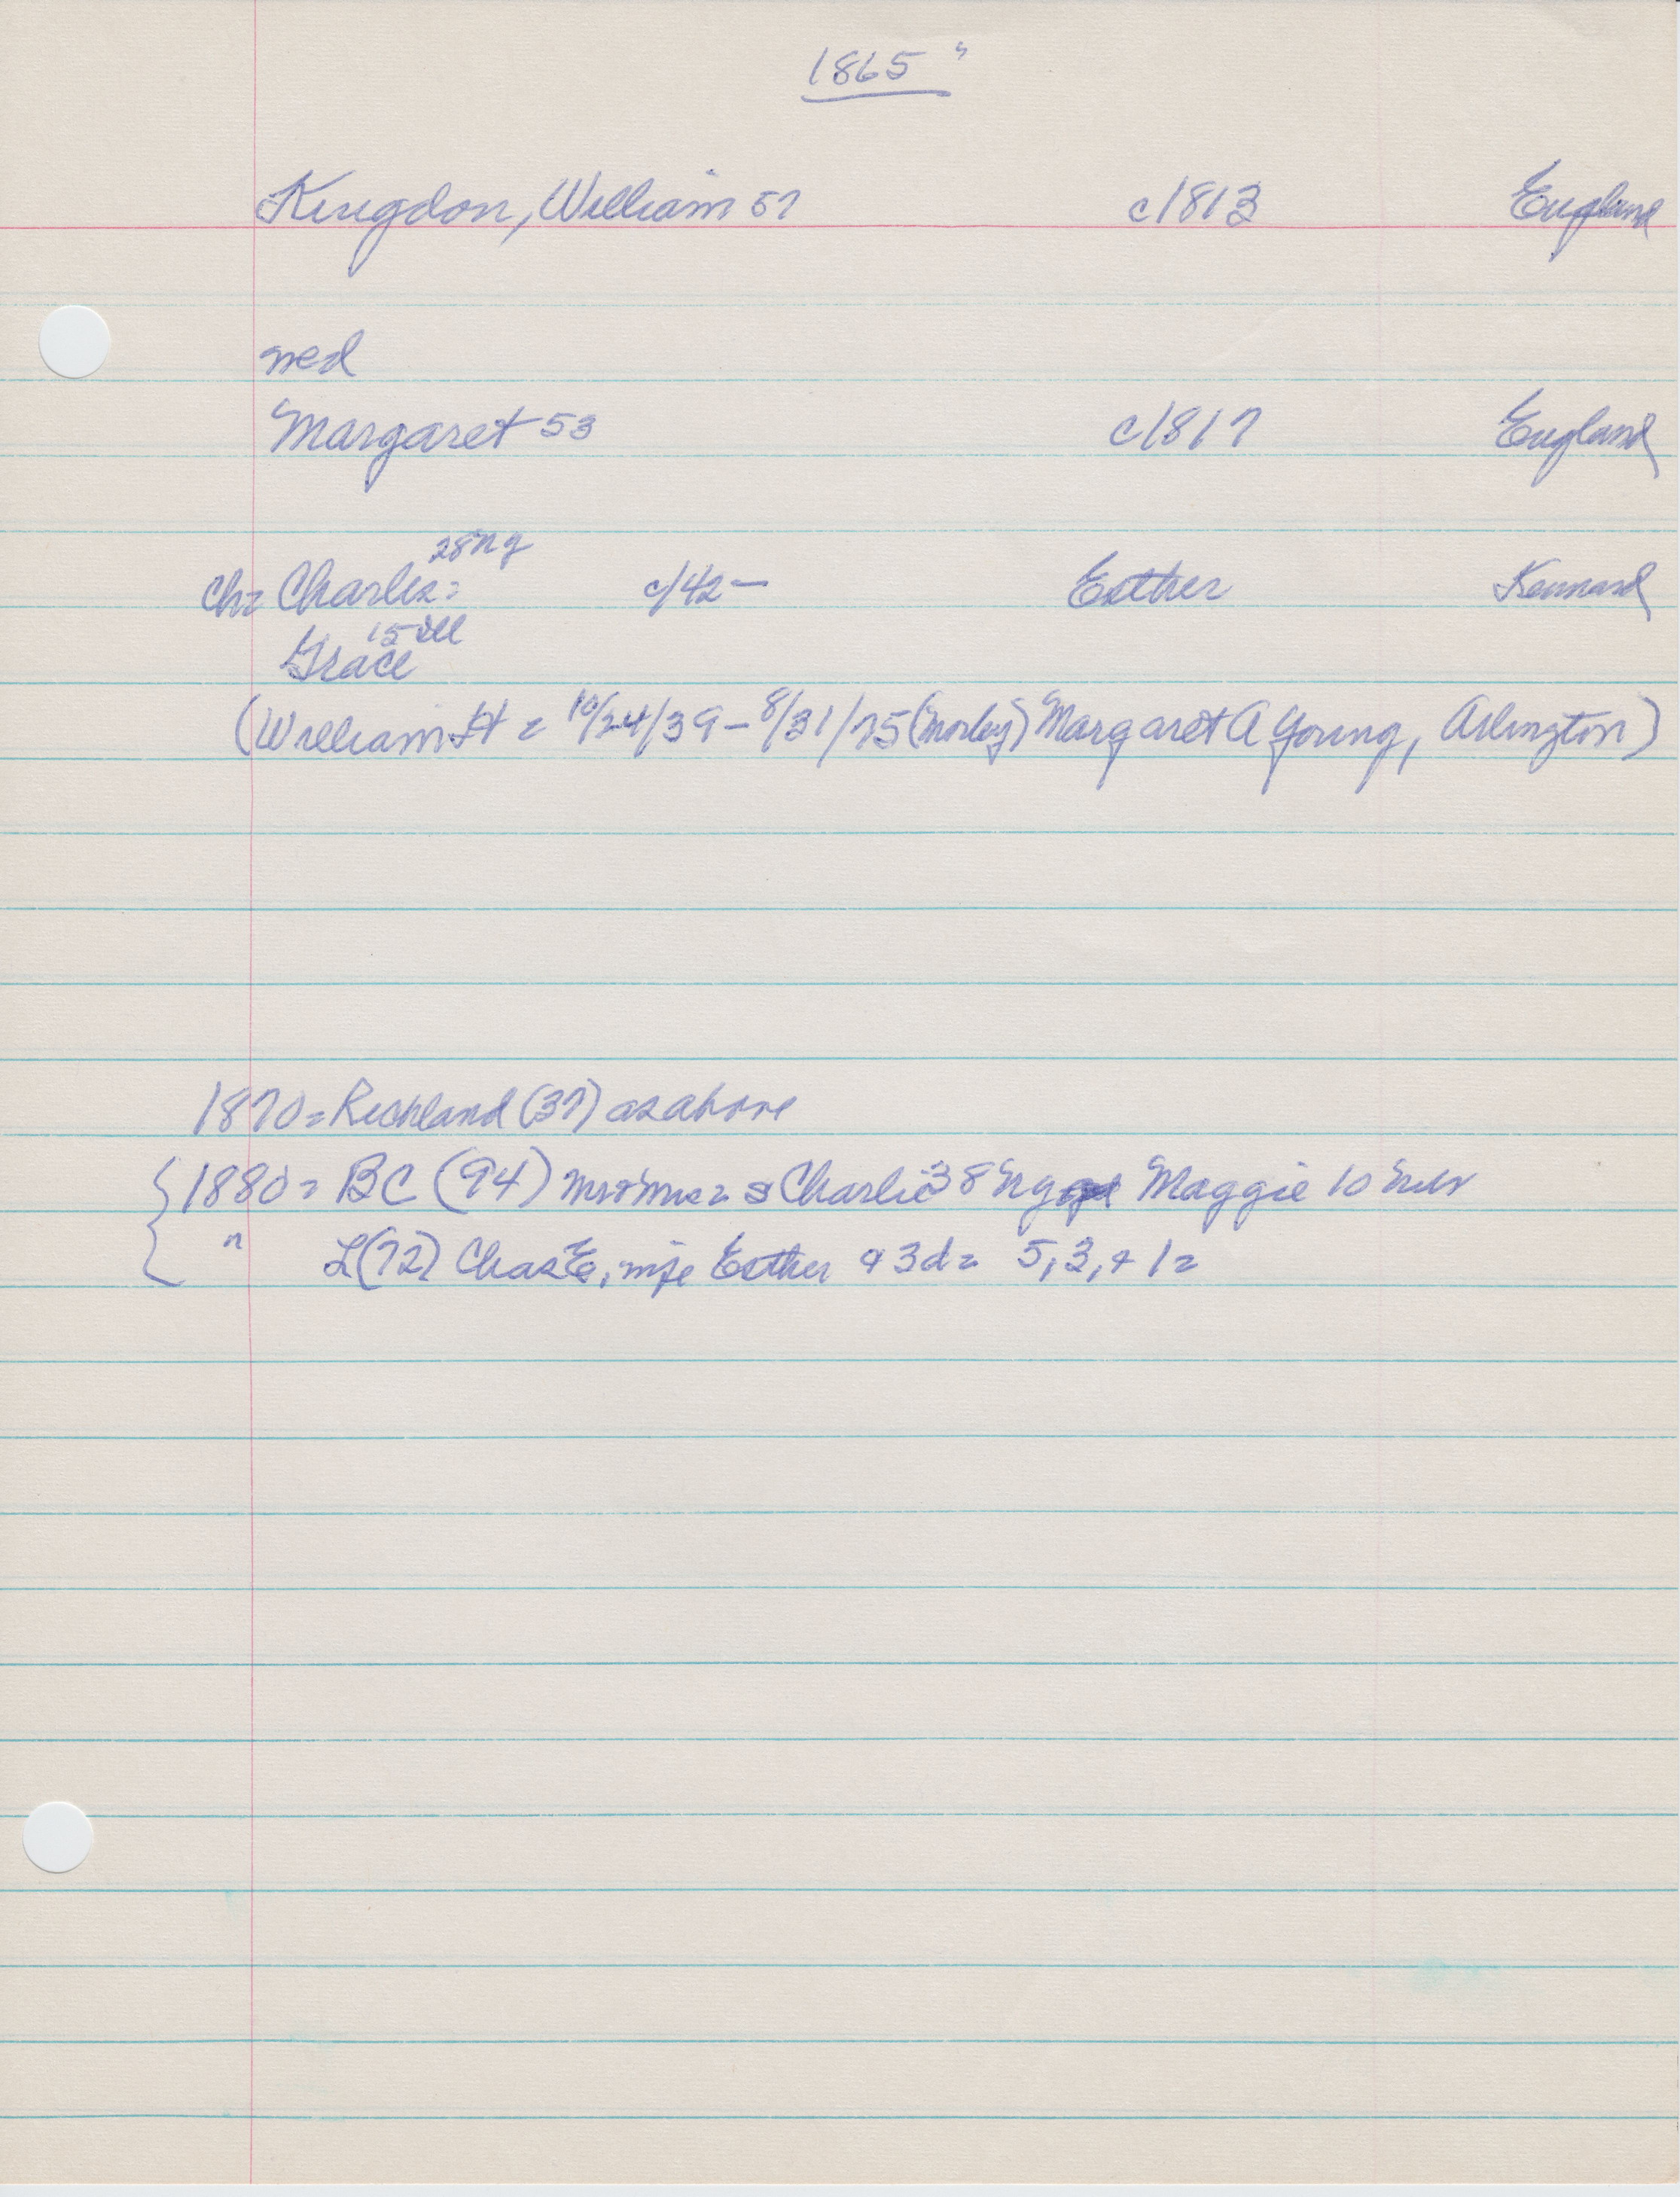 1865"
Kingdon, William 57 c1813 England
med
Margaret 53 c1817 England
28 Ng
Ch= Charles= c/42- Esther Kennard
15 Ill
Grace
(William H = 10/24/39-8/31/75 (Morley) Margaret A Young, Arlington)
1870= Richland (37) as above
{1880= BC (94) Mr + Mrs = s Charlie 38 Ng Maggie 10
" L(72) Chas E, wife Esther & 3d= 5, 3, + 1=